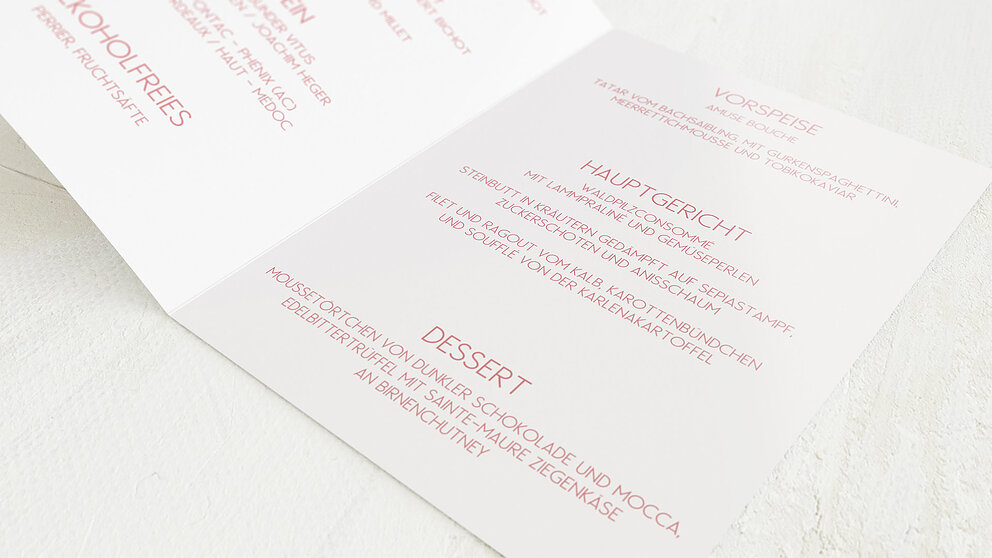 ERT BICHOT
MILLET
EIN
UNDER VITUS
EN / JOACHIM HEGER
ONTAC - PHENIX (AC)
RDEAUX / HAUT - MEDOC
LKOHOLFREIES
PERRIER, FRUCHTSÄFTE
VORSPEISE
AMUSE BOUCHE
TATAR VOM BACHSAIBLING, MIT GURKENSPAGHETTINI,
MEERRETTICHMOUSSE UND TOBIKOKAVIAR
HAUPTGERICHT
WALDPILZCONSOMME
MIT LAMMPRALINE UND GEMÜSEPERLEN
STEINBUTT IN KRÄUTERN GEDÄMPFT AUF SEPIASTAMPF,
ZUCKERSCHOTEN UND ANISSCHAUM
FILET UND RAGOUT VOM KALB, KAROTTENBÜNDCHEN
UND SOUFFLÉ VON DER KARLENAKARTOFFEL
DESSERT
MOUSSETÖRTCHEN VON DUNKLER SCHOKOLADE UND MOCCA,
EDELBITTERTRÜFFEL MIT SAINTE-MAURE ZIEGENKÄSE
AN BIRNENCHUTNEY